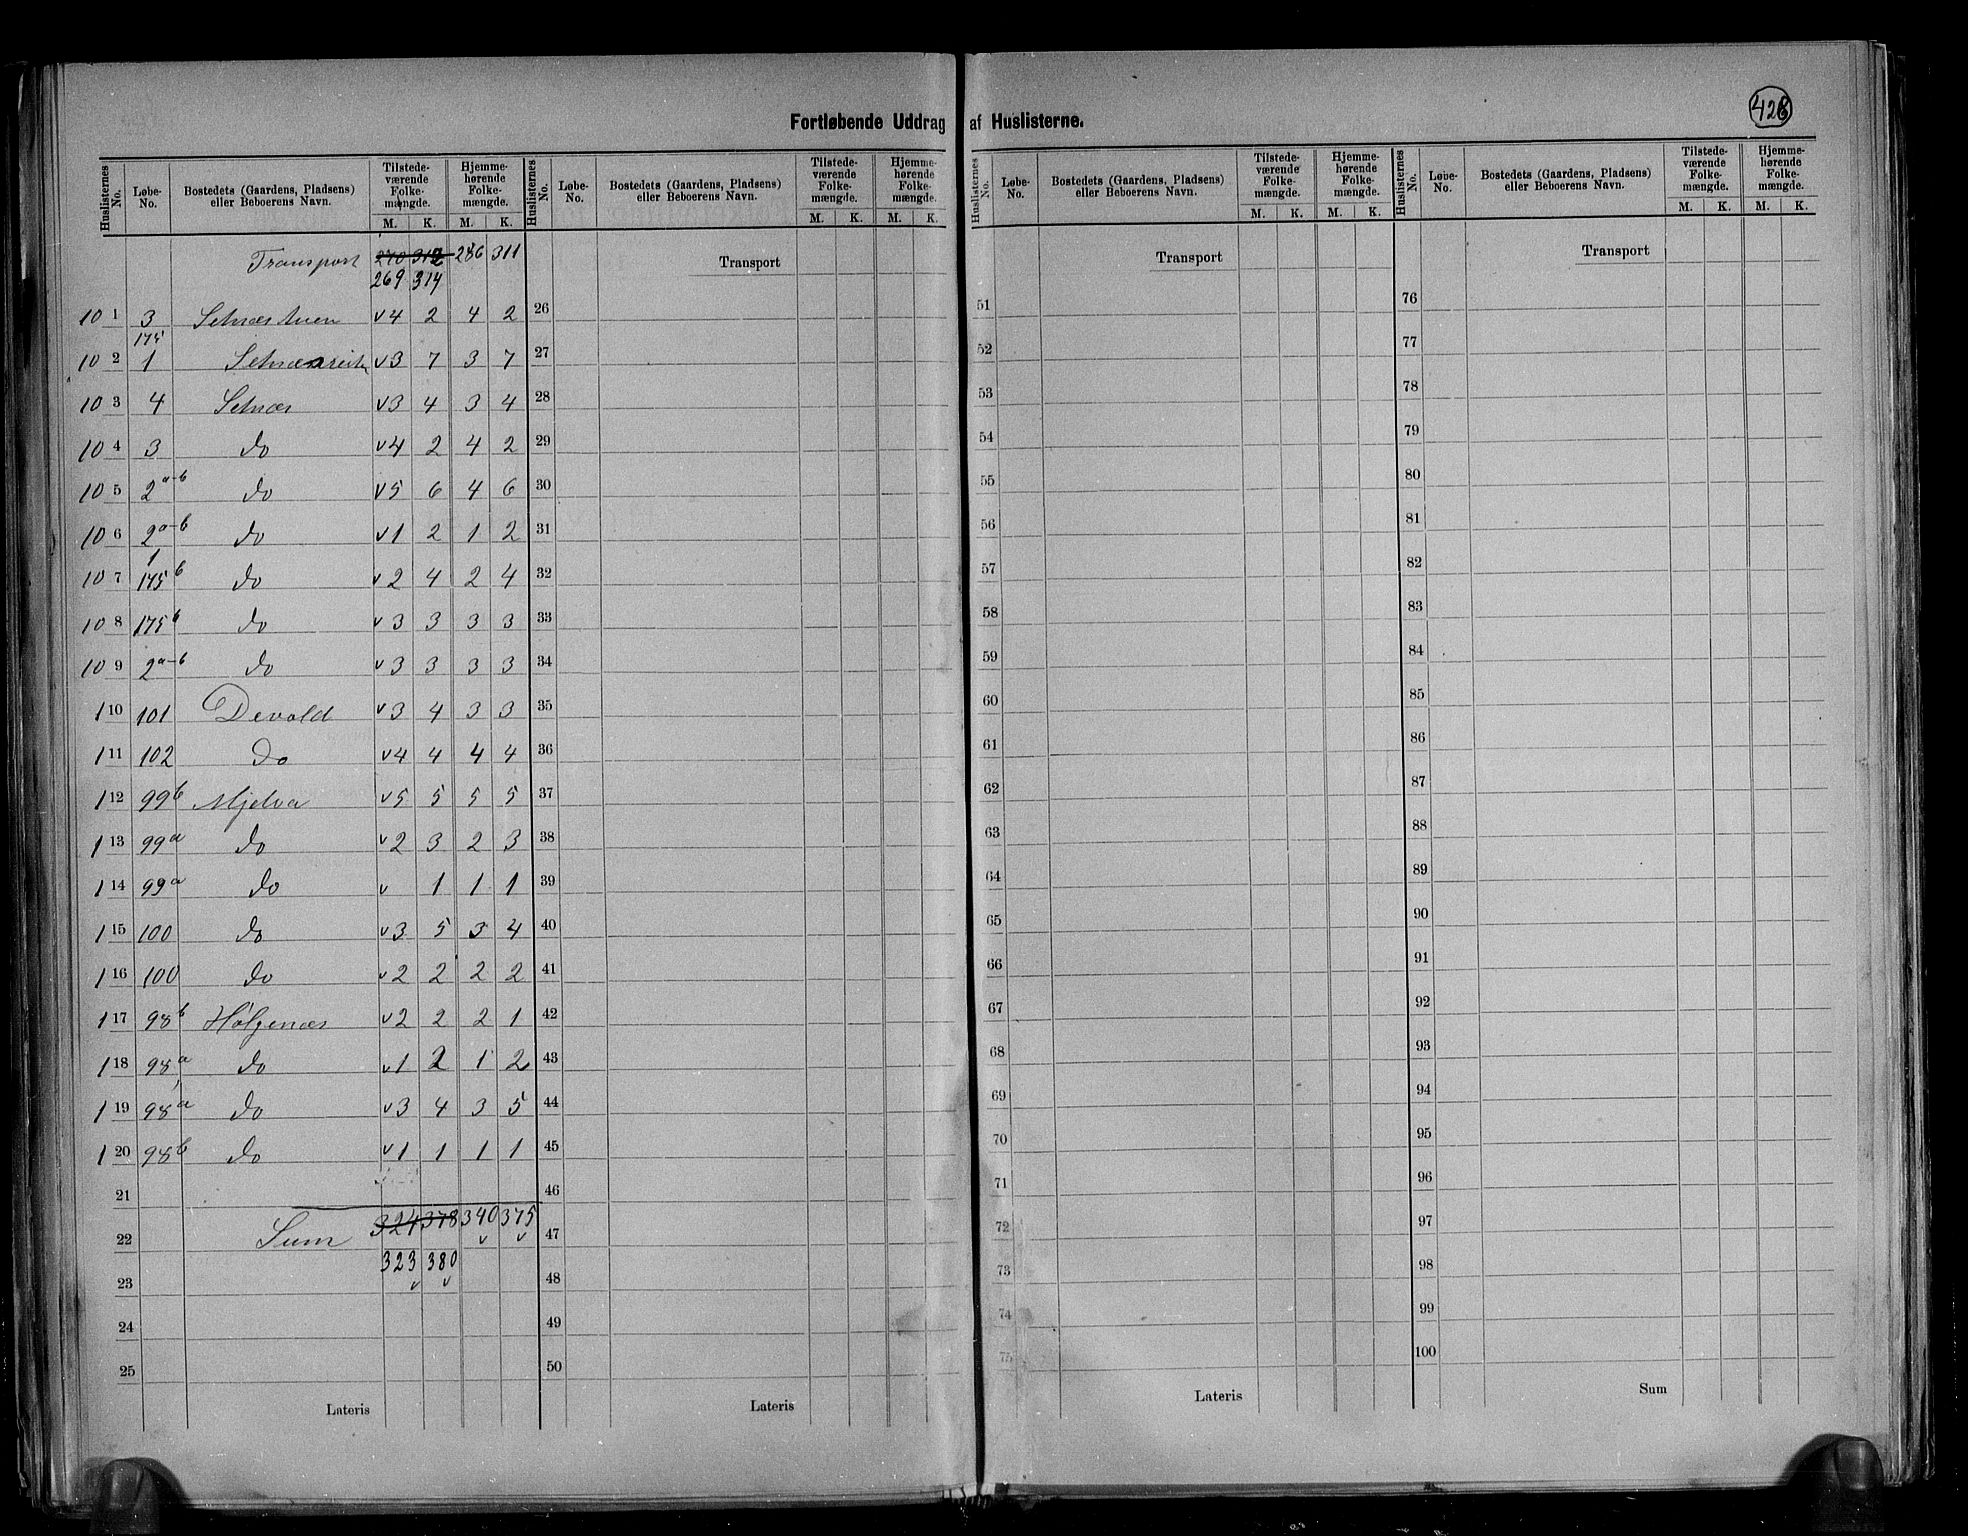 428
Fortløbende Uddrag af Huslisterne.
Huslisternes No. | Løbe-No. | Bostedets (Gaardens, Pladsens) eller Beboerens Navn. | Tilstedeværende Folkemængde. M. K. | Hjemmehørende Folkemængde. M. K. | Huslisternes No. | Løbe-No. | Bostedets (Gaardens, Pladsens) eller Beboerens Navn. | Tilstedeværende Folkemængde. M. K. | Hjemmehørende Folkemængde. M. K. | Huslisternes No. | Løbe-No. | Bostedets (Gaardens, Pladsens) eller Beboerens Navn. | Tilstedeværende Folkemængde. M. K. | Hjemmehørende Folkemængde. M. K. | Huslisternes No. | Løbe-No. | Bostedets (Gaardens, Pladsens) eller Beboerens Navn. | Tilstedeværende Folkemængde. M. K. | Hjemmehørende Folkemængde. M. K.
Transport 270 312 286 311
269 314
Transport
Transport
Transport
10 1 3 v4 2 4 2 26 51 76
175
10 2 1 v3 7 3 7 27 52 77
10 3 4 Setnæs v3 4 3 4 28 53 78
10 4 3 do v4 2 4 2 29 54 79
10 5 2a-b do v5 6 4 6 30 55 80
10 6 2a-b do v1 2 1 2 31 56 81
1
10 7 175b do v2 4 2 4 32 57 82
10 8 175b do v3 3 3 3 33 58 83
10 9 2a-b do v3 3 3 3 34 59 84
1 10 101 Devold v3 4 3 3 35 60 85
1 11 102 do v4 4 4 4 36 61 86
1 12 99b Mjelva v5 5 5 5 37 62 87
1 13 99a do v2 3 2 3 38 63 88
1 14 99a do v 1 1 1 39 64 89
1 15 100 do v3 5 3 4 40 65 90
1 16 100 do v2 2 2 2 41 66 91
1 17 98b Holgenæs v2 2 2 1 42 67 92
1 18 98a do v1 2 1 2 43 68 93
1 19 98a do v3 4 3 5 44 69 94
1 20 98b do v1 1 1 1 45 70 95
21 46 71 96
22 Sum 324 378 340 375 47 72 97
v v
23 323 380 48 73 98
v v
24 49 74 99
25 50 75 100
Lateris
Lateris
Lateris
Sum